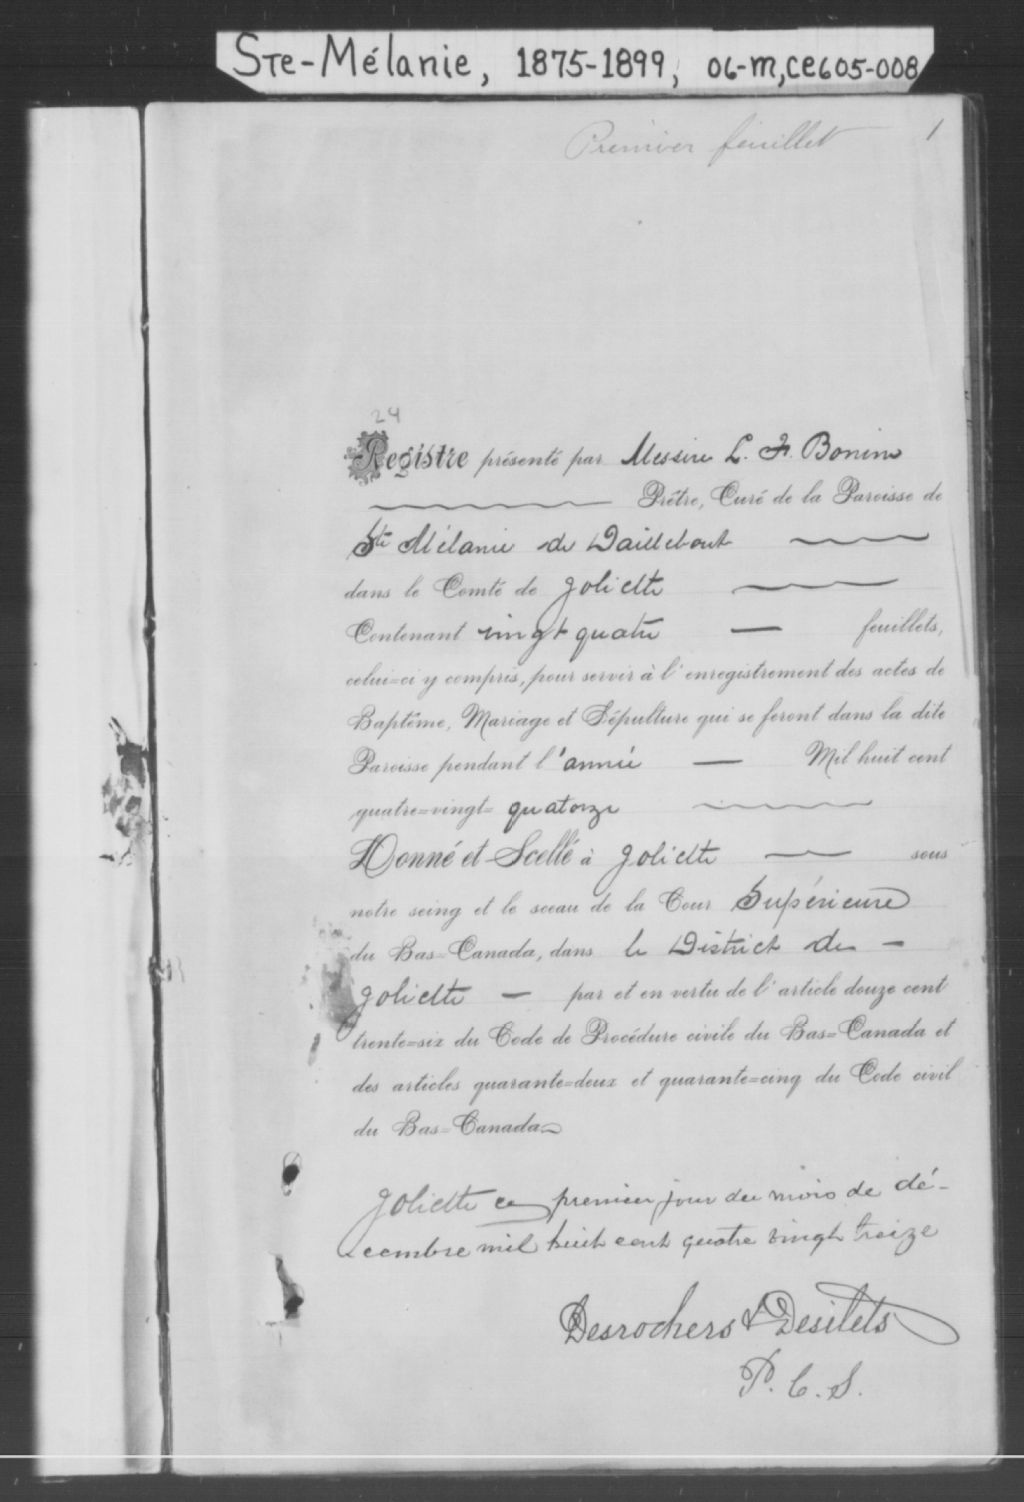 Ste-Mélanie, 1875-1899, 06-M,CE605-008
Premier feuillet 1
24
Registre présenté par Messire L. F. Bonin
Prêtre, Curé de la Paroisse de
Ste Mélanie de Daillebout
dans le Comté de Joliette
Contenant vingt quatre — feuillets,
celui=ci y compris, pour servir à l'enregistrement des actes de
Baptême, Mariage et Sépulture qui se feront dans la dite
Paroisse pendant l'année — Mil huit cent
quatre=vingt= quatorze
Donné et Scellé à Joliette — sous
notre seing et le sceau de la Cour Supérieure
du Bas=Canada, dans le District de —
Joliette — par et en vertu de l'article douze cent
trente=six du Code de Procédure civile du Bas=Canada et
des articles quarante=deux et quarante=cinq du Code civil
du Bas=Canada
Joliette ce premier jour du mois de dé-
cembre mil huit cent quatre vingt treize
Desrochers & Desilets
P. C. S.